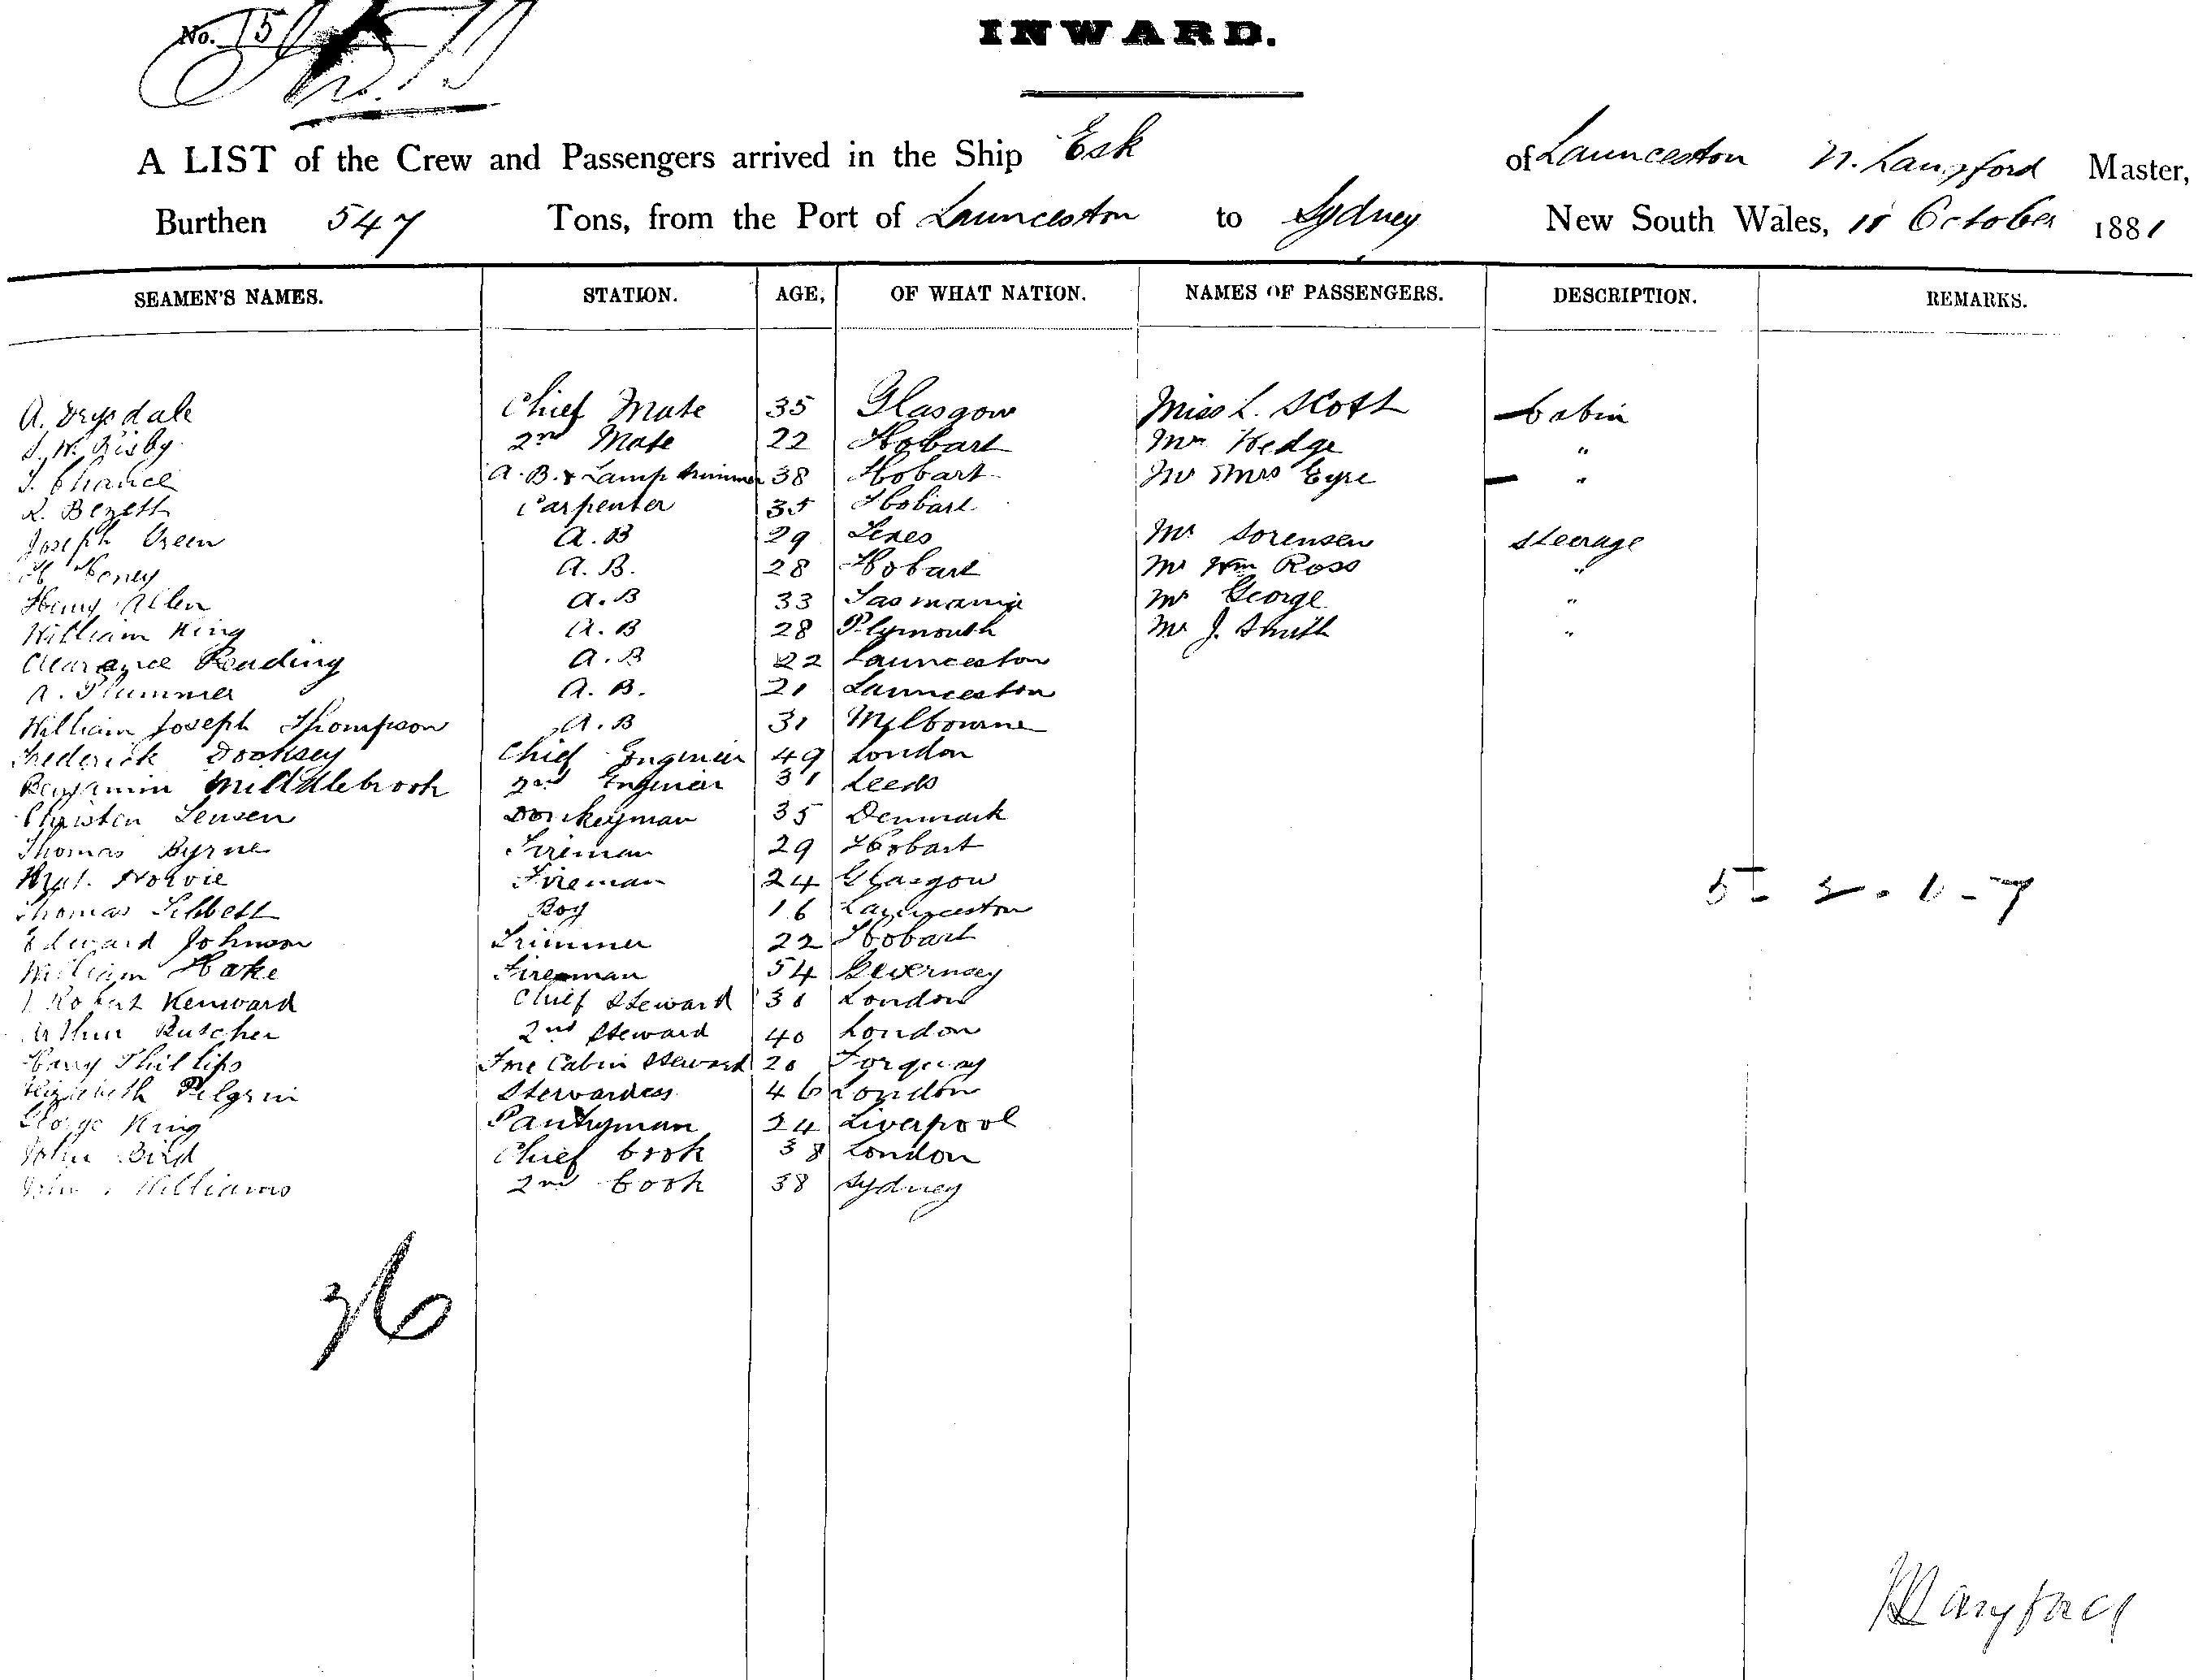 No. 15
INWARD.
A LIST of the Crew and Passengers arrived in the Ship Esk of Launceston N. Langford Master,
Burthen 547 Tons, from the Port of Launceston to Sydney New South Wales, 18 October 1881
SEAMEN'S NAMES. STATION. AGE, OF WHAT NATION. NAMES OF PASSENGERS. DESCRIPTION. REMARKS.
A. Drysdale Chief Mate 35 Glasgow Miss L. Scott Cabin
J. W. Risby 2nd Mate 22 Hobart Mr Hedge "
J. Chance A.B. & Lamp trimmer 38 Hobart Mr Mrs Eyre "
R. Bezett Carpenter 35 Hobart
Joseph Green A.B 29 Mr Sorensen Steerage
A.B. 28 Hobart Mr Wm Ross "
Henry Allen A.B 33 Tasmania Mr George "
William King A.B 28 Plymouth Mr J. Smith "
Clearance Reading A.B 22 Launceston
A. Plummer A.B. 21 Launceston
William Joseph Thompson A.B 31 Melbourne
Frederick Dooksey Chief Engineer 49 London
Benjamin Milddlebrook 2nd Engineer 31 Leeds
Christen Jensen Donkeyman 35 Denmark
Thomas Byrne Fireman 29 Hobart
Norvie Fireman 24 Glasgow 5 - 2 - 1 - 7
Thomas Tibbett Boy 16 Launceston
Edward Johnson Trimmer 22 Hobart
William Hake Fireman 54 Guernsey
Robert Kenward Chief Steward 31 London
Arthur Butcher 2nd Steward 40 London
Harry Phillips Fore Cabin Steward 20 Torquay
Elizabeth Pilgrim Stewardess 46 London
George King Pantryman 24 Liverpool
John Bird Chief Cook 38 London
John Williams 2nd Cook 38 Sydney
36